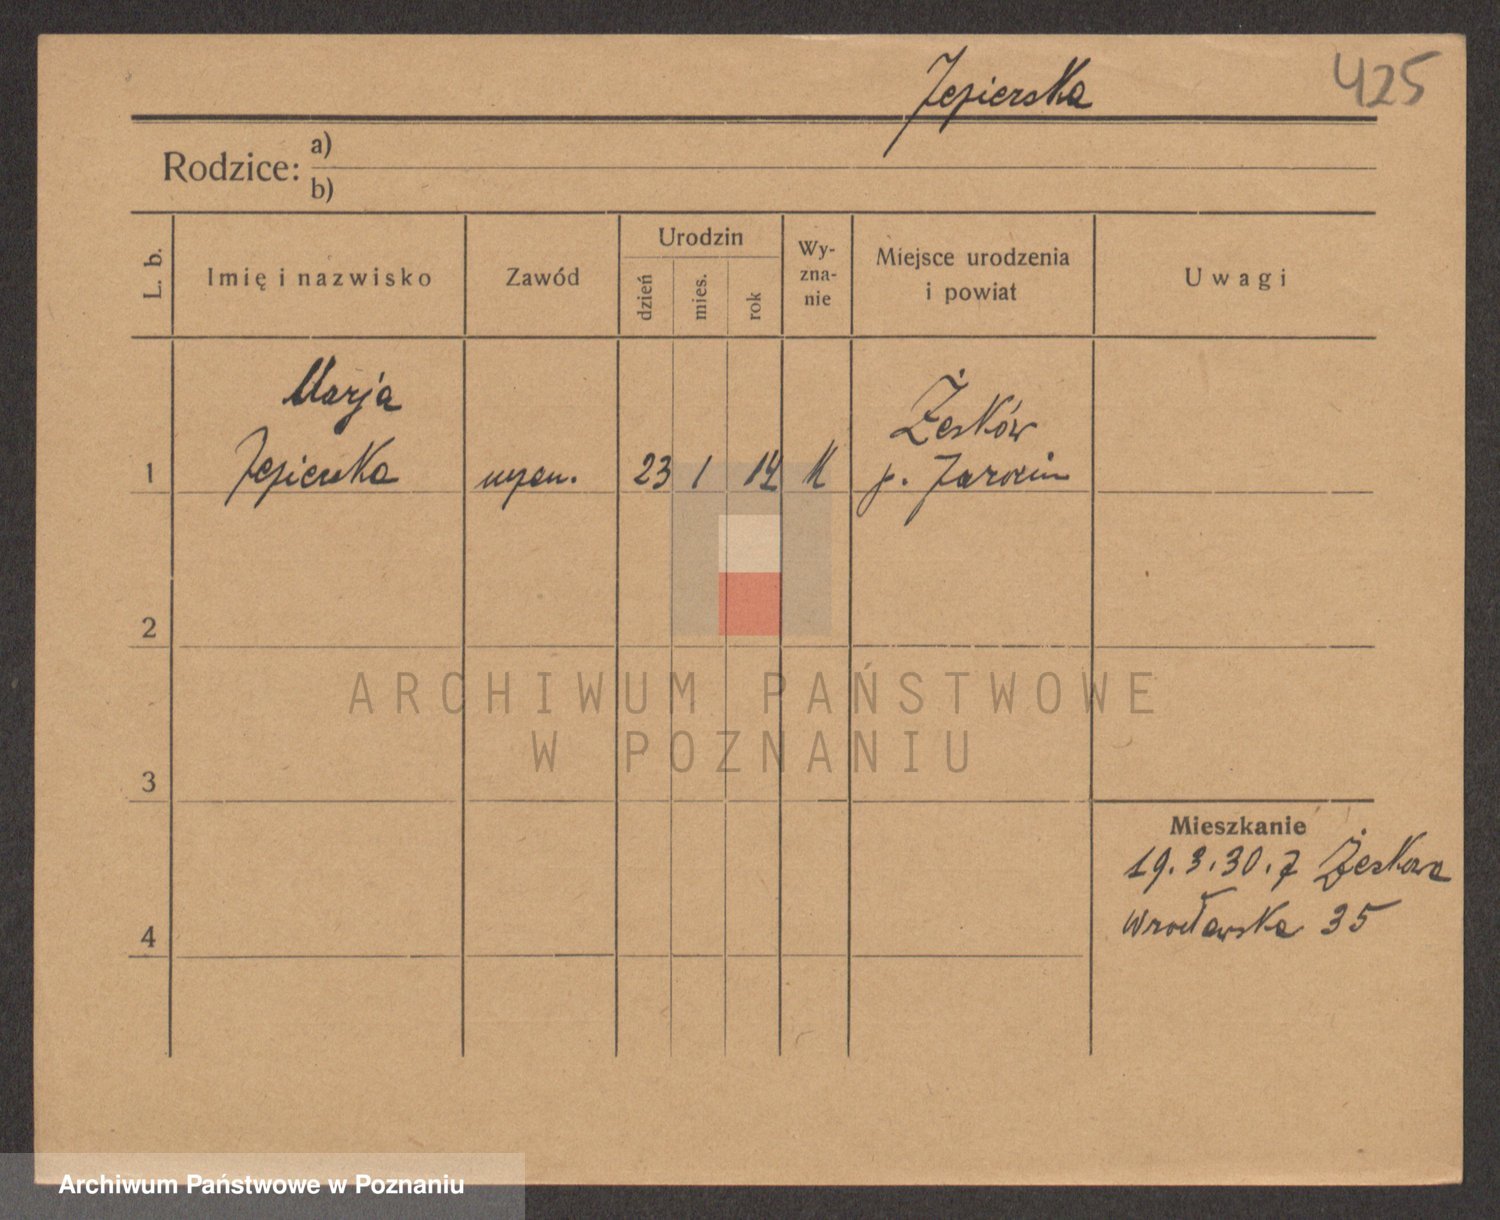 Jezierska
425
Rodzice: a)
b)
L. b.
Imię i nazwisko
Zawód
Urodzin
dzień
mies.
rok
Wy-
zna-
nie
Miejsce urodzenia
i powiat
Uwagi
Marja
1 Jezierska 23 1 14 Żerków
p. Jarocin
2
ARCHIWUM PAŃSTWOWE
W POZNANIU
3
Mieszkanie
19.3.30. z Żerkowa
4 Wrocławska 35
Archiwum Państwowe w Poznaniu